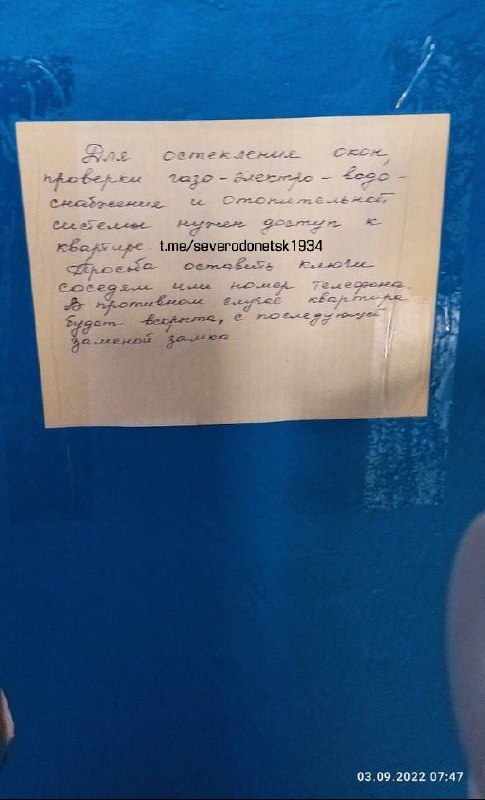 Для остекления окон,
проверки газо-электро-водо-
снабжение и отопительной
системы нужен доступ к
квартире t.me/severodonetsk1934
Просьба оставить ключи
соседям или номер телефона.
В противном случае квартира
будет вскрыта, с последующей
заменой замка
03.09.2022 07:47